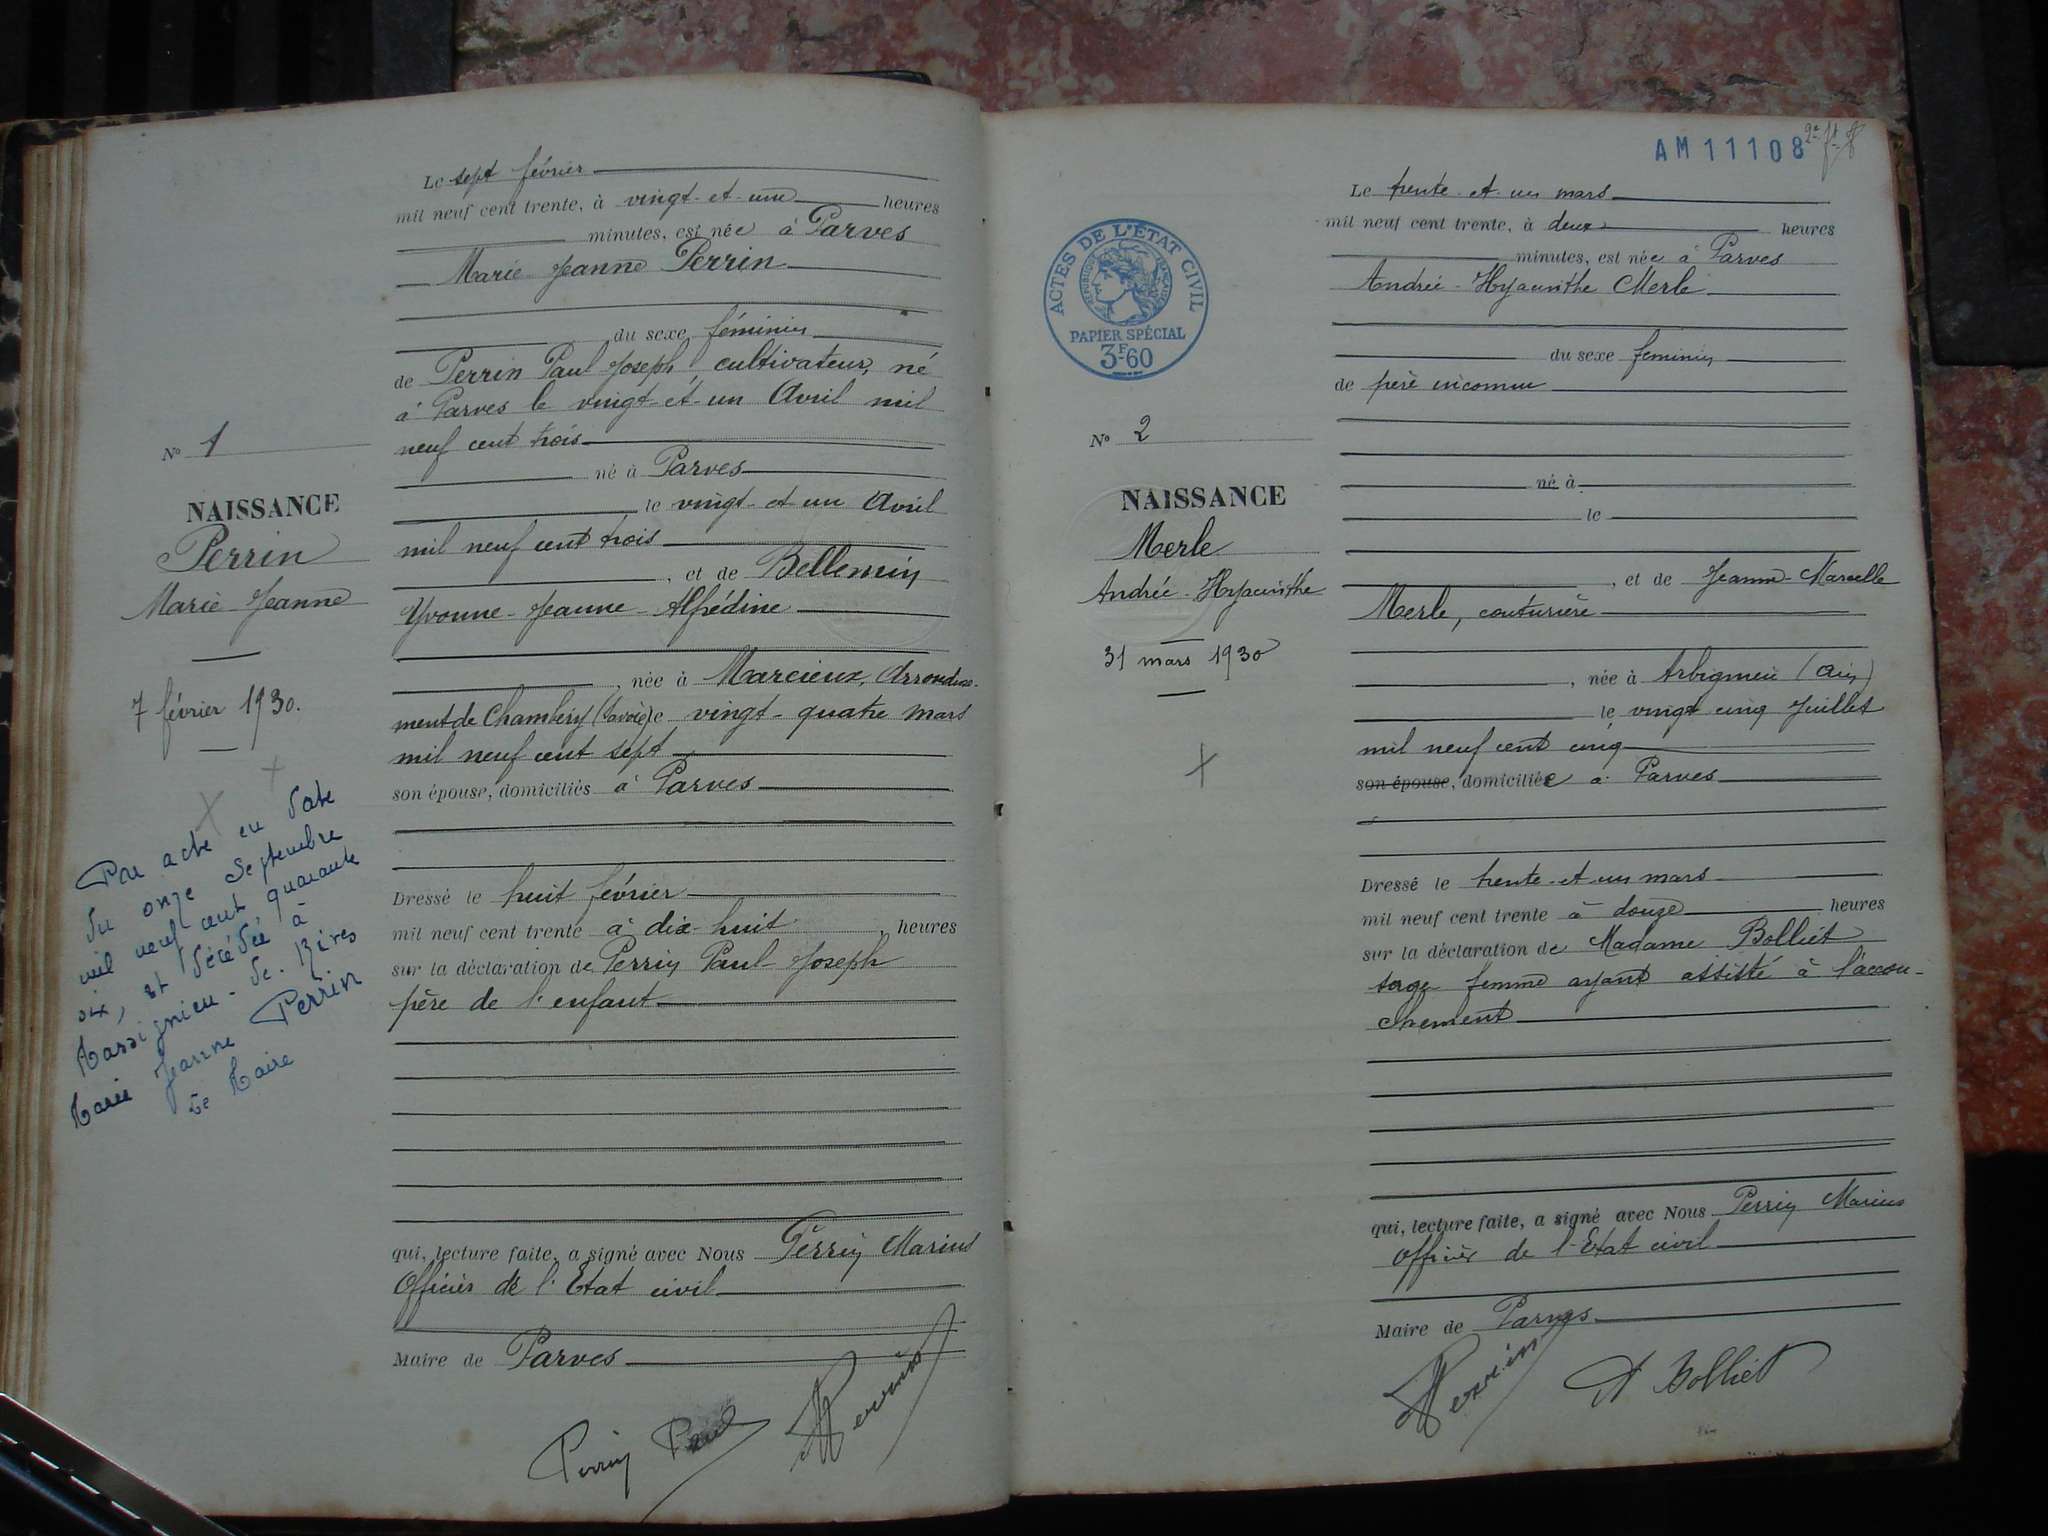 Le sept février
mil neuf cent trente, à vingt-et-une heures
minutes, est née à Parves
Marie Jeanne Perrin
du sexe féminin
de Perrin Paul Joseph cultivateur, né
à Parves le vingt-et-un Avril mil
neuf cent trois
né à Parves
le vingt-et-un Avril
mil neuf cent trois
, et de Bellemin
Yvonne-Jeanne-Alfrédine
, née à Marcieux, Arrondisse-
ment de Chambéry (Savoie) le vingt-quatre mars
mil neuf cent sept
son épouse, domiciliés à Parves
Dressé le huit février
mil neuf cent trente à dix-huit heures
sur la déclaration de Perrin Paul Joseph
père de l'enfant
qui, lecture faite, a signé avec Nous Perrin Marius
Officier de l'Etat civil
Maire de Parves
Perrin Paul
Perrin
No 1
NAISSANCE
Perrin
Marie Jeanne
7 février 1930.
Par acte en date
du onze Septembre
mil neuf cent quarante
six, est décédée à
Massignieu-de-Rives
Marie Jeanne Perrin
Le Maire
AM11108
ACTES DE L'ÉTAT CIVIL
RÉPUBLIQUE FRANÇAISE
PAPIER SPÉCIAL
3F60
No 2
NAISSANCE
Merle
Andrée-Hyacinthe
31 mars 1930
Le trente-et-un mars
mil neuf cent trente, à deux heures
minutes, est née à Parves
Andrée-Hyacinthe Merle
du sexe feminin
de père inconnu
né à
le
, et de Jeanne-Marcelle
Merle, couturière
, née à Arbignieu (Ain)
le vingt cinq Juillet
mil neuf cent cinq
son épouse, domiciliée à Parves
Dressé le trente-et-un mars
mil neuf cent trente à douze heures
sur la déclaration de Madame Bolliet
sage femme ayant assisté à l'accou-
chement
qui, lecture faite, a signé avec Nous Perrin Marius
officier de l'Etat civil
Maire de Parves
Perrin
A Bolliet